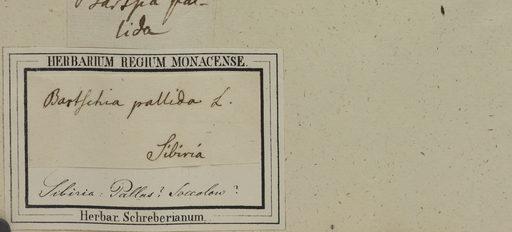 Bartsia pal-
lida
HERBARIUM REGIUM MONACENSE.
Bartschia pallida L.
Sibiria
Sibiria: Pallas? Soccolow?
Herbar. Schreberianum.